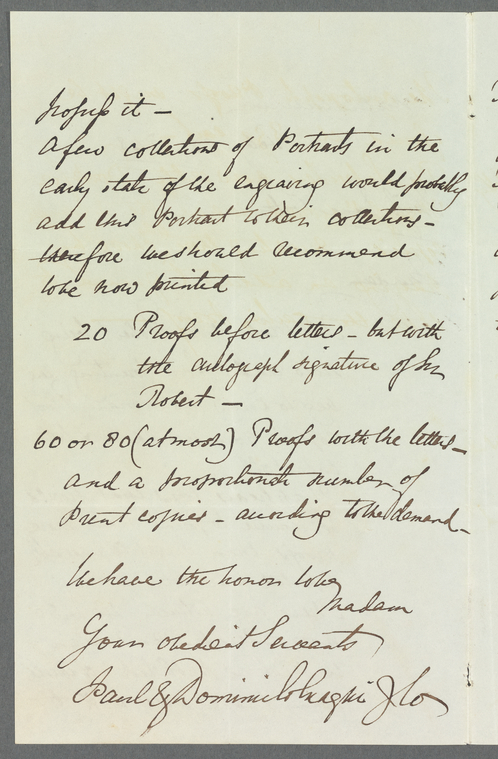 possess it —
A few collectors of Portraits in the
early state of the engraving would probably
add this Portrait to their collections —
therefore we should recommend
to be now printed
20 Proofs before letters — but with
the autograph signature of Sir
Robert —
60 or 80 (at most) Proofs with the letters —
and a proportionate number of
Print copies — according to the demand —
We have the honor to be
Madam
Your obedient Servants
Paul & Dominic Colnaghi & Co